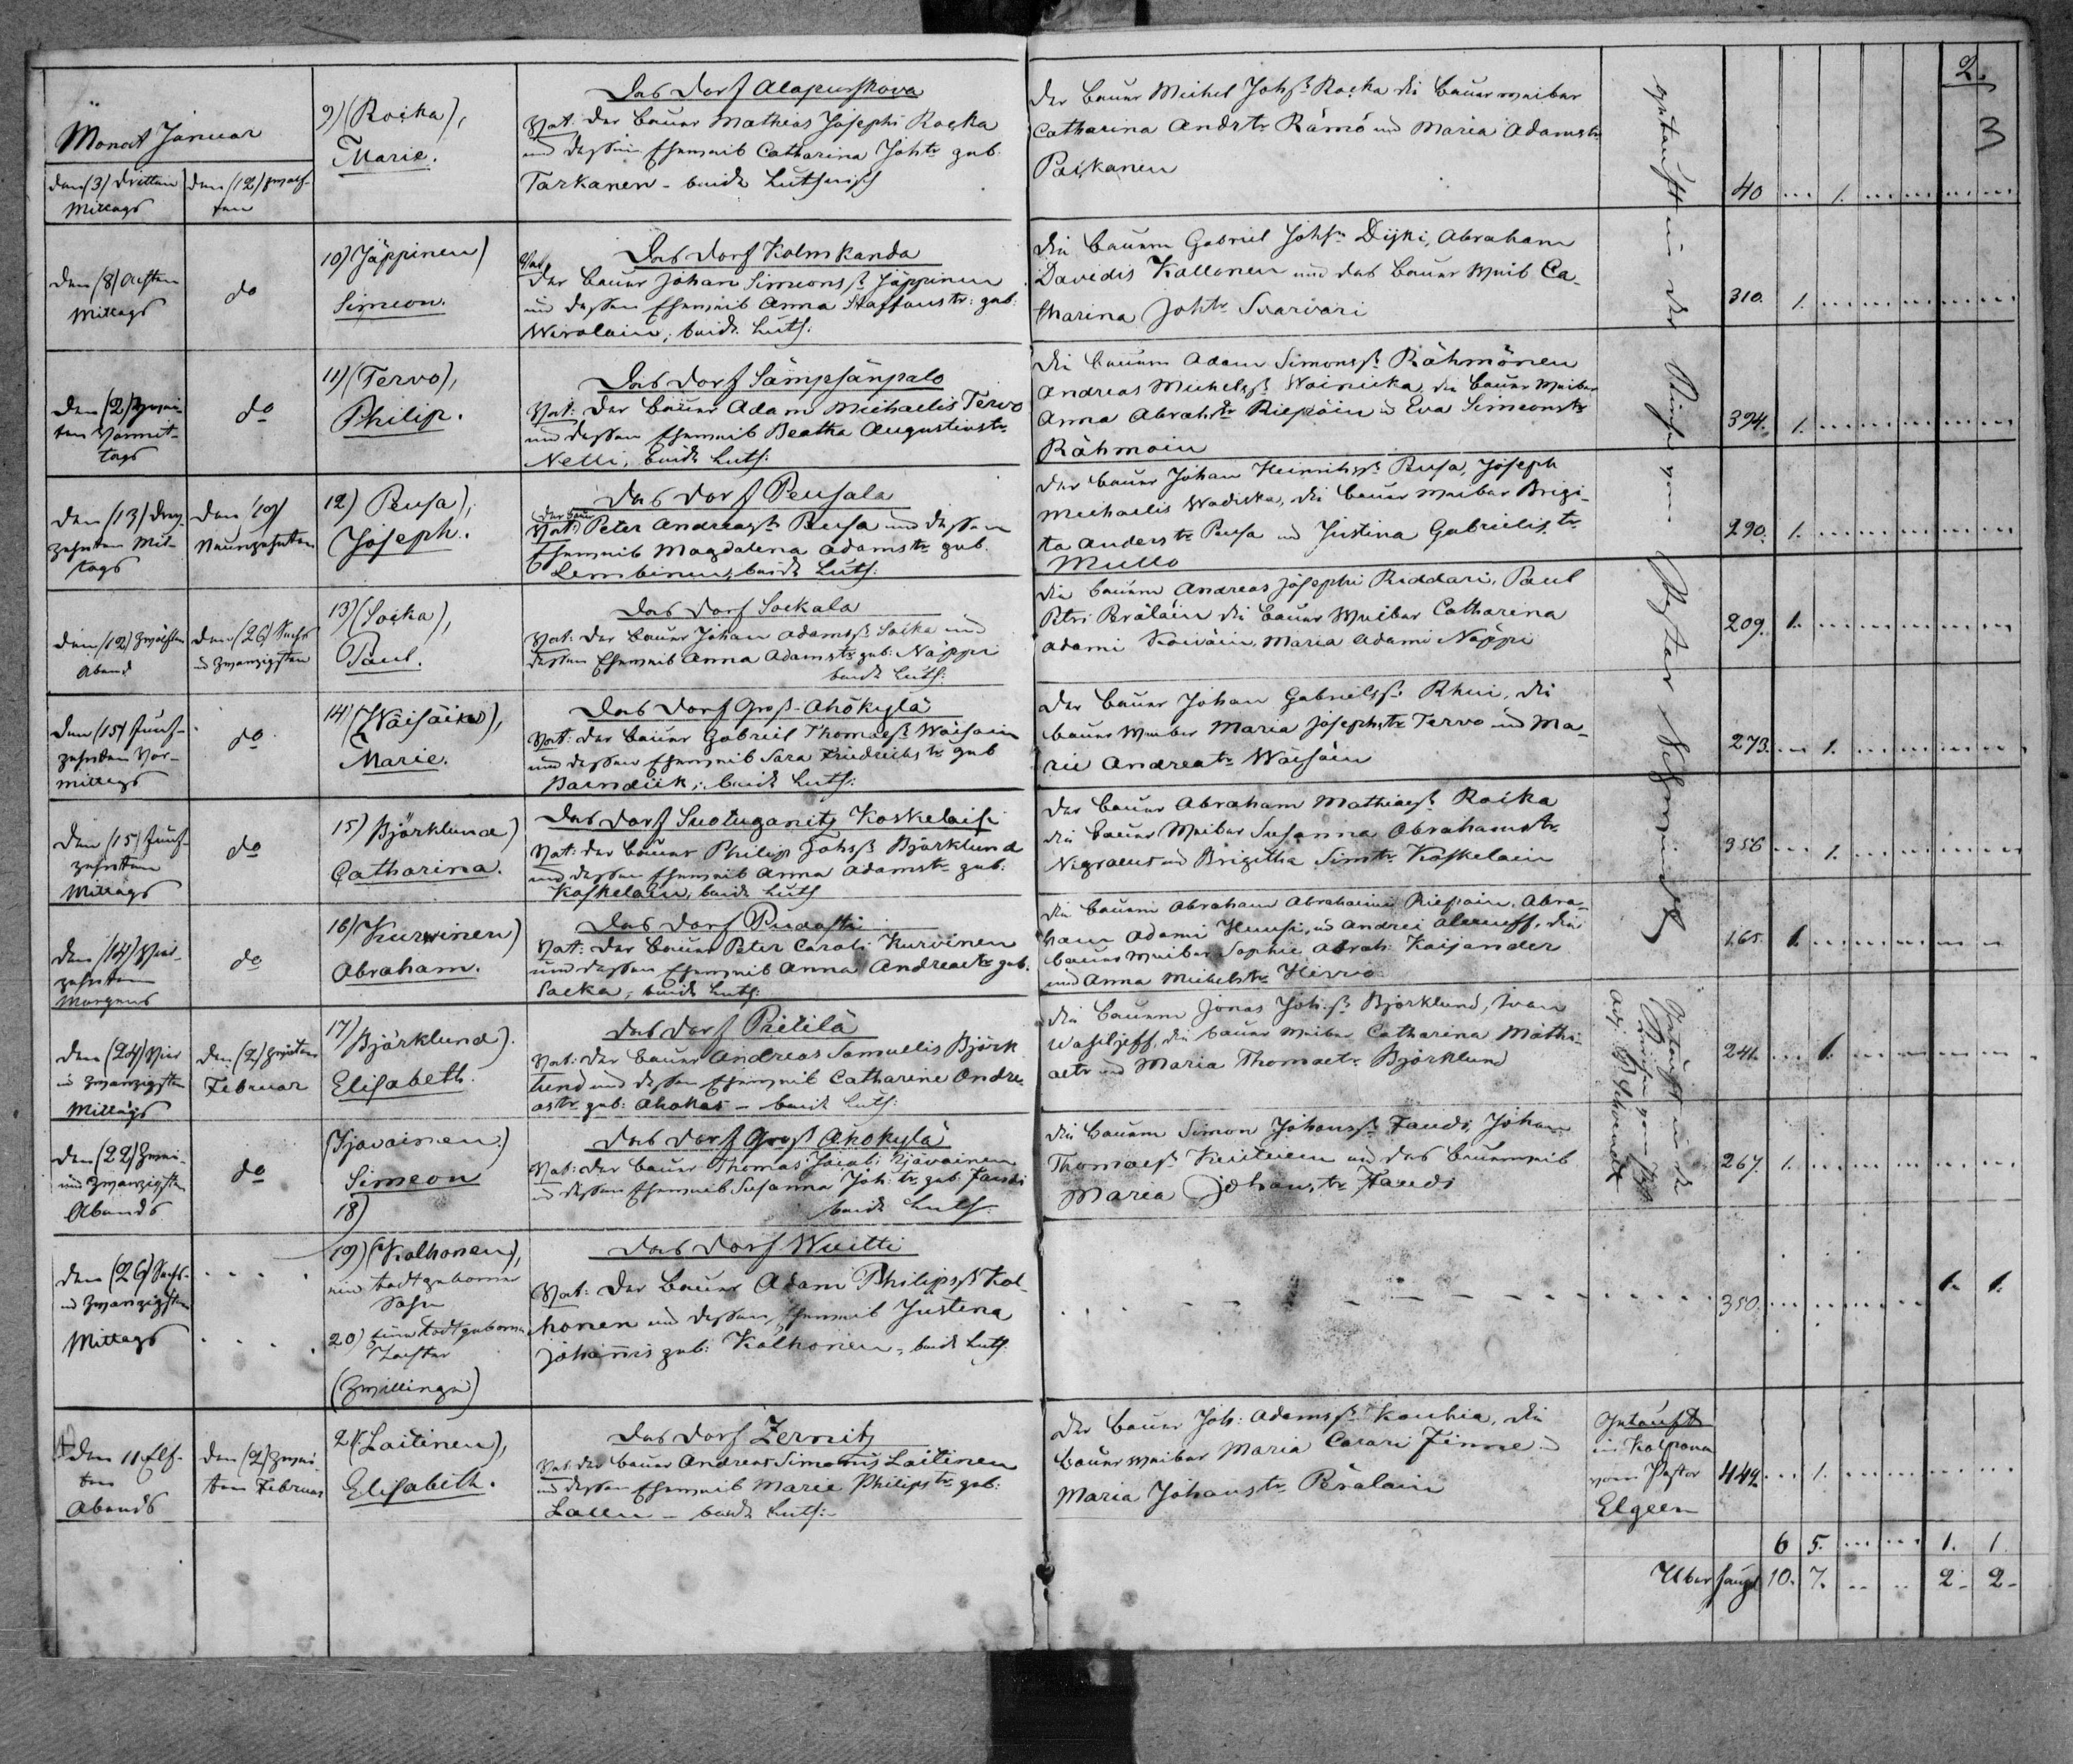 2.
3
Monat Januar
den (3) dritten Mittags
den (12) zwölften
9) (Roika),
Marie.
Das Dorf Alapurskova
Vat: der Bauer Mathias Josephi Rocka
und dessen Eheweib Catharina Johtr geb.
Tarkanen - beide Lutherisch
Der Bauer Michel Johsß Rocka die Bauerweiber
Catharina Andrstr Rämö und Maria Adamstr
Paikanen
40 ... 1.
den (8) Achten
Mittags
do
10) Jäppinen)
Simeon.
Das Dorf Kolmkanda
Vat.
der Bauer Johan Simonsß Jäppinen
und dessen Eheweib Anna Staffanstr: geb:
Wirolain; beide Luth:
Die Bauern Gabriel Johsn Dijki, Abraham
Davidis Kallonen und das Bauer Weib Ca-
tharina Johtr Svarvari
310. 1.
den (2) Zwei-
ten Vormit-
tags
do
11) (Tervo),
Philip.
Das Dorf Sämpsänpalo
Vat: der Bauer Adam Michaelis Tervo
und dessen Eheweib Beatha Augustinstr
Nelli, beide Luth:
Die Bauern Adam Simonsß Rähmönen
Andreas Michelsß Wainicka, die Bauer Weiber
Anna Abrahstr Riepoin u Eva Simeonstr
Rähmoin
394. 1.
den (13) drey-
zehnten Mit-
tags
den (19)
Neunzehnten
12) Peusa),
Joseph.
Das Dorf Peusala
der Bauer
Vat: Peter Andreasß Peusa und dessen
Eheweib Magdalena Adamstr geb.
Lembinen, beide Luth:
Der Bauer Johan Heinrichsß Peusa, Joseph
Michaelis Wadiska, die Bauer Weiber Brigi-
ta Anderstr Peusa und Justina Gabrielistr
Mullo
290. 1.
den (12) zwölften
Abend
den (26) Sechs
u zwanzigsten
13) (Soika),
Paul.
Das Dorf Sockala
Vat: der Bauer Johan Adamsß Soika und
dessen Eheweib Anna Adamstr geb: Nappi
beide Luth:
Die Bauern Andreas Josephi Riddari, Paul
Petri Perälain die Bauer Weiber Catharina
Adami Kowäin, Maria Adami Näppi
209. 1.
den (15) Fünf-
zehnten Vor-
mittags
do
14) (Wäisäin),
Marie.
Das Dorf Groß-Ahökylä
Vat: der Bauer Gabriel Thomaesß Wäisain
und dessen Eheweib Sara Friedrichstr geb
Paindiik; beide Luth:
Der Bauer Johan Gabrielsß Khui, die
Bauer Weiber Maria Josephstr Tervo und Ma-
rie Andreatr Wäisäin
273. ... 1.
den (15) Fünf-
zehnten
Mittags
do
15) Björklund)
Catharina.
Das Dorf Suotuganitz Koskelaisi
Vat: der Bauer Philip Johsß Björklund
und dessen Eheweib Anna Adamstr geb:
Koskelain, beide Luth
Der Bauer Abraham Mathiaesß Roika
die Bauer Weiber Susanna Abrahamstr
Negraeus und Brigitha Simtr Koskelain
356 ... 1.
den (14) Vier-
zehnten
Morgens
do
16) (Kurwinen)
Abraham.
Das Dorf Pudosti
Vat: der Bauer Peter Caroli Kurvinen
und dessen Eheweib Anna Andreaetr geb.
Sacka, beide Luth:
Die Bauern Abraham Abrahami Riepoin, Abra-
ham Adami Huusi, u Andrei Alexeeff, die
Bauer Weiber Sophie Abrah: Kaijander
und Anna Michelstr Hirvio
165. 1.
den (24) Vier
u zwanzigsten
Mittags
den (2) Zweiten
Februar
17) Björklund).
Elisabeth.
Das Dorf Pietilä
Vat: der Bauer Andreas Samuelis Björk
lund und dessen Eheweib Catharine Andre-
astr geb: Ahokas - beide Luth:
Die Bauern Jonas Joh:ß Björklund, Iwan
Wasiljeff, die Bauer Weiber Catharina Mathi-
aetr und Maria Thomaetr Björklund
241. ... 1.
den (22) Zwei-
und zwanzigsten
Abends
do
(Kjavainen)
Simeon
18)
Das Dorf Groß Ahokylä
Vat: der Bauer Thomas Jacobi Kjävainen
und dessen Eheweib Susanna Joh:tr geb: Fandi
beide Luth.
Die Bauern Simon Johansß Fandi, Johan
Thomaesß Keiituen und das Bauerweib
Maria Johanstr Fandi
267. 1.
getauft in der Kirche vom Pastor Schwindt
Getauft in der
Kirche vom Past.
adj. B. Schwindt
den (26) Sechs-
u zwanzigsten
Mittags
19) (Kolhonen),
ein todtgeborner
Sohn
20) eine todtgeborne
Tochter
(Zwillinge)
Das Dorf Wuitti
Vat: der Bauer Adam Philipsß Kol-
honen und dessen Eheweib Justina
Johannis geb: Kolhonen, beide Luth.
350. 1. 1.
den 11 Elf-
ten
Abends
den (2) Zwei-
ten Februar
21 (Laitinen),
Elisabeth.
Das Dorf Zermitz
Vat: der Bauer Andreas Simonis Laitinen
und dessen Eheweib Marie Philipstr geb:
Lallu - beide Luth:
Der Bauer Joh: Adamsß Kauhia, die
Bauerweiber Maria Casari Finne u
Maria Johanstr Perälain
Getauft
in Kolpana
vom Pastor
Elgeen
442 ... 1.
6 5. ... 1. 1.
Überhaupt 10. 7. .. .. 2- 2-